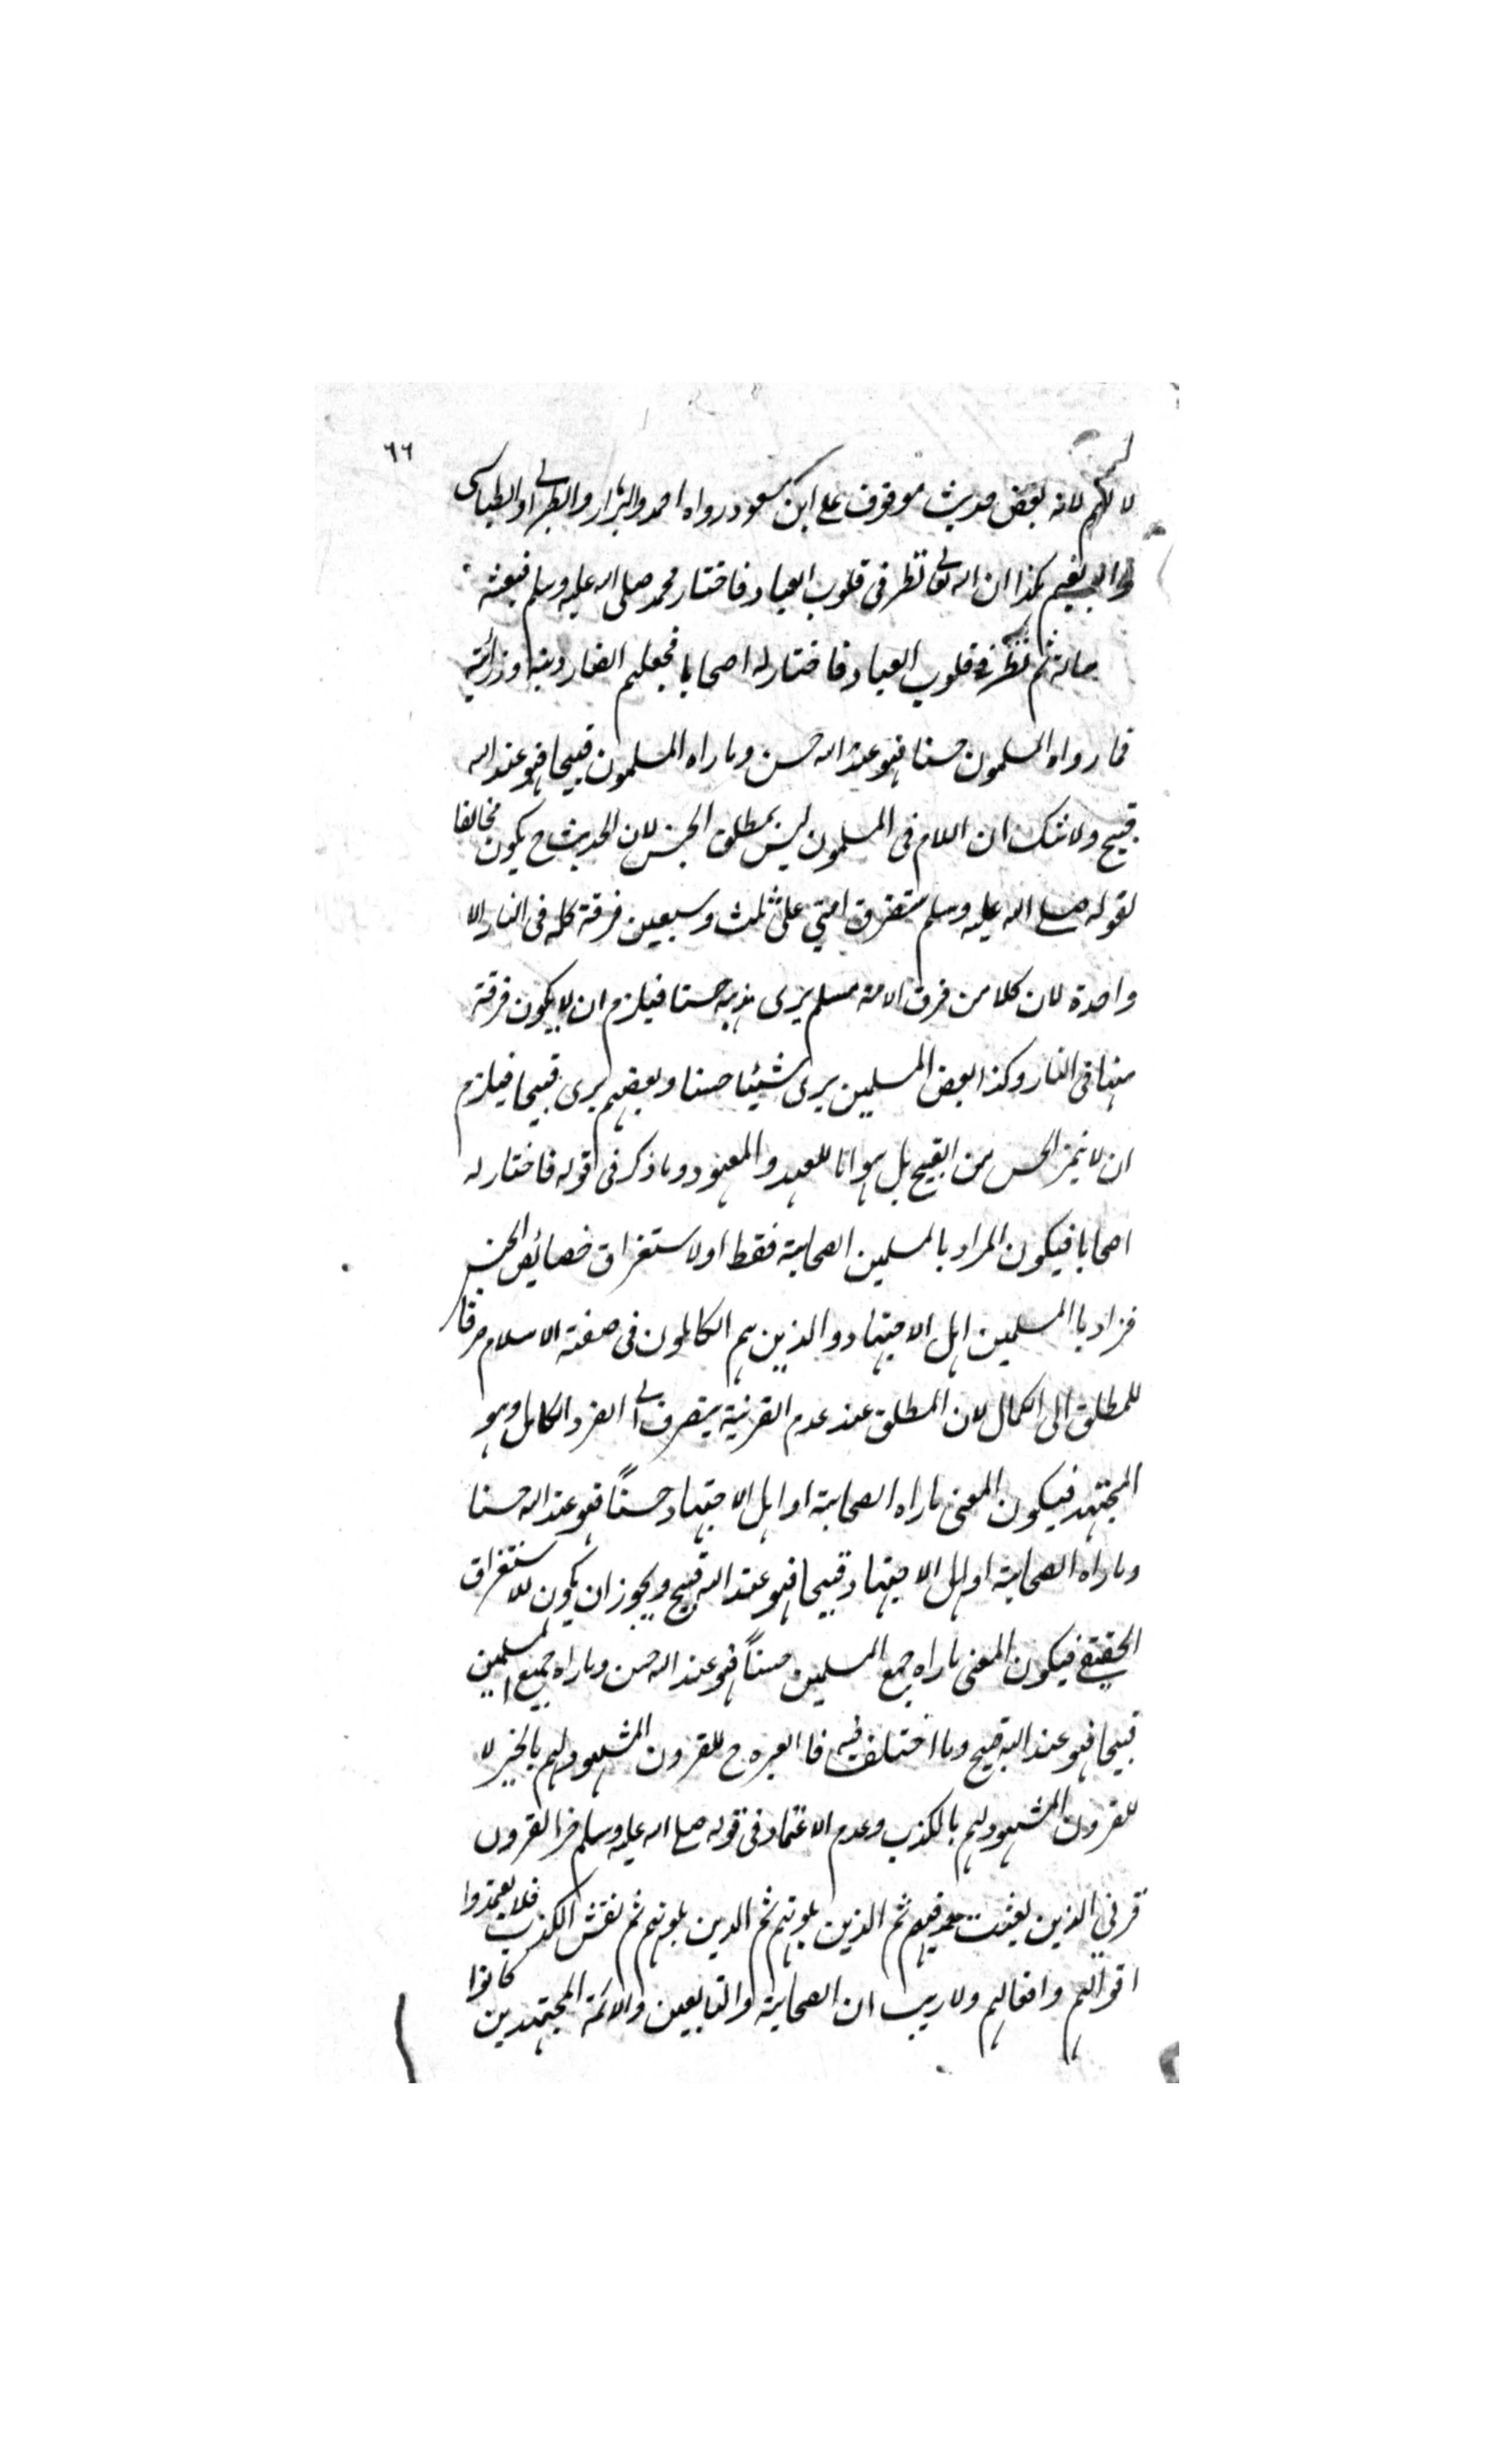 ٦٦
لا لهم لانه بعض حديث موقوف على ابن مسعود رواه احمد والبزار والطبراني والطيالسي
وابو نعيم هكذا ان الله تعالى نظر في قلوب العباد فاختار محمد صلى الله عليه وسلم فبعثه
رسالته ثم نظر في قلوب العباد فاختار له اصحابا فجعلهم انصار دينه ووزرائه
فما رواه المسلمون حسنا فهو عند الله حسن وما راه المسلمون قبيحا فهو عند الله
قبيح ولا شك ان اللام في المسلمون ليس بمطلق الجنس لان الحديث ح يكون مخالفا
لقوله صلى الله عليه وسلم ستفرق امتي على ثلث وسبعين فرقة كله في النار الا
واحدة لان كلا من فرق الامة مسلم يرى مذهبه حسنا فيلزم ان لا يكون فرقة
منها في النار وكذا بعض المسلمين يرى شيئا حسنا وبعضهم يرى قبيحا فيلزم
ان لا تميز الحسن من القبيح بل هو اما للعهد والمعهود وما ذكر في قوله فاختار له
اصحابا فيكون المراد بالمسلمين الصحابة فقط او لاستغراق خصائص الجنس
فراد بالمسلمين اهل الاجتهاد والذين هم الكاملون في صفة الاسلام صرفا
للمطلق الى الكمال لان المطلق عند عدم القرينة ينصرف الى الفرد الكامل وهو
المجتهد فيكون المعنى ما راه الصحابة او اهل الاجتهاد حسناً فهو عند الله حسنا
وما راه الصحابة او اهل الاجتهاد قبيحا فهو عند الله قبيح ويجوز ان يكون للاستغراق
الحقيقي فيكون المعنى ما راه جميع المسلمين حسناً فهو عند الله حسن وما راه جميع المسلمين
قبيحا فهو عند الله قبيح وما اختلف فيه فا العبره ح للقرون المشهود لهم بالخير لا
للقرون المشهود لهم بالكذب وعدم الاعتماد في قوله صلى الله عليه وسلم خر القرون
قرني الذين بعثت فيهم ثم الذين يلونهم ثم الذين يلونهم ثم يفش الكذب فلا يعتمدوا
اقوالهم وافعالهم ولا ريب ان الصحابة والتابعين والائمة المجتهدين كانوا